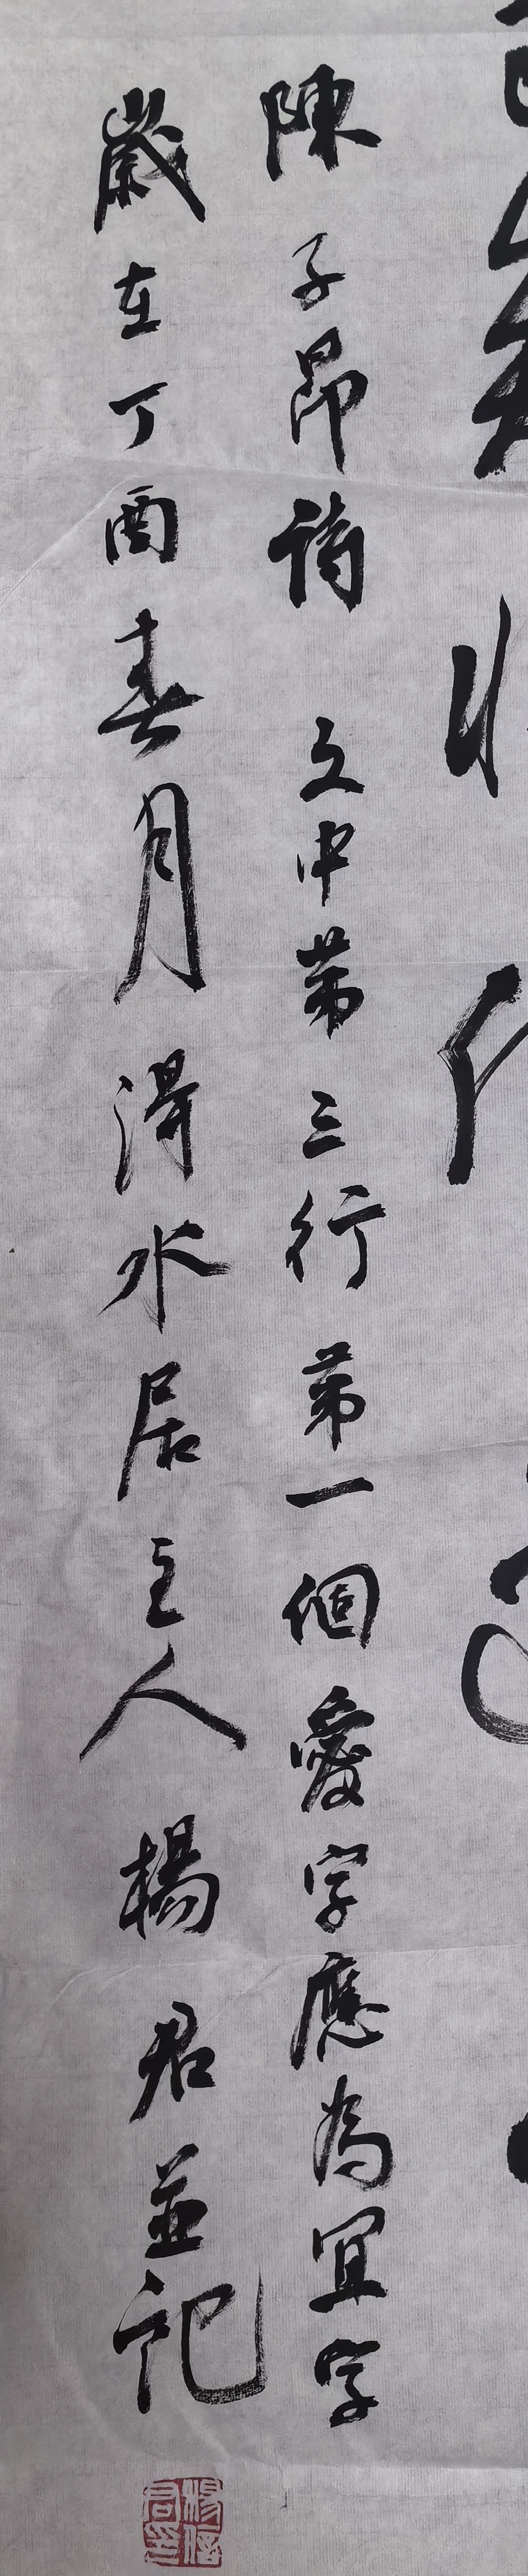 陳子昂詩 文中第三行第一個愛字應為宜字
歲在丁酉春月得水居主人楊君並記